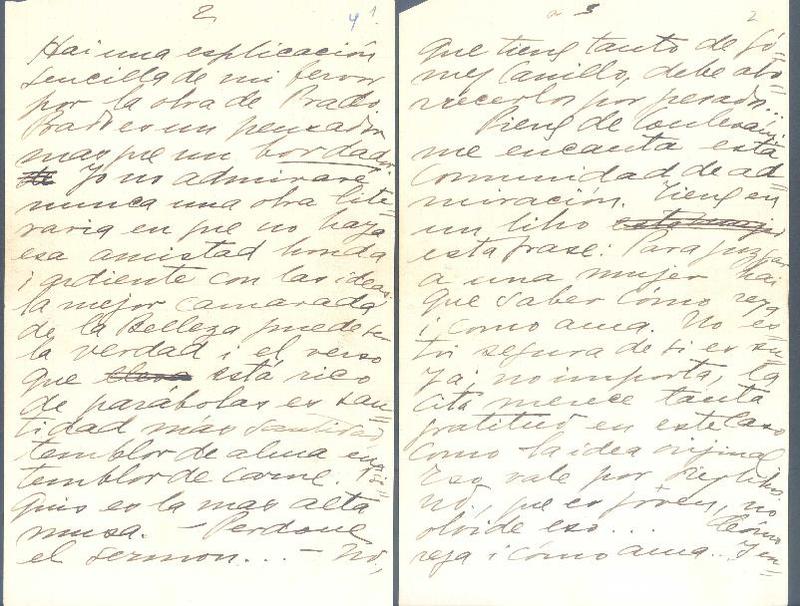 2
4 1.
Hai una esplicación
sencilla de mi fervor
por la obra de Prado.
Prado es un pensador
mas que un bordador.
Yo no admiraré
nunca una obra lite-
raria en que no haya
esa amistad honda
i ardiente con las ideas;
la mejor camarada
de la Belleza puede ser
la verdad i el verso
que lleva está rico
de parábolas es san-
tidad mas santidad,
temblor de alma en
temblor de carne.
quis es la mas alta
musa. — Perdone
el sermon... — No,
3
2
que tiene tanto de
Canillo, debe abo-
rrecerlos por pesado...
Viene de
me encanta esta
comunidad de ad-
miración. Tiene en
un libro
esta frase: Para juzgar
a una mujer hai
que saber cómo reza
i como ama. No es-
toi segura de si es su-
ya; no importa, la
cita merece tanta
gratitud en este caso
como la idea orijinal
Eso vale por
no, que es jóven, no
olvide eso... Cómo
reza i cómo ama...